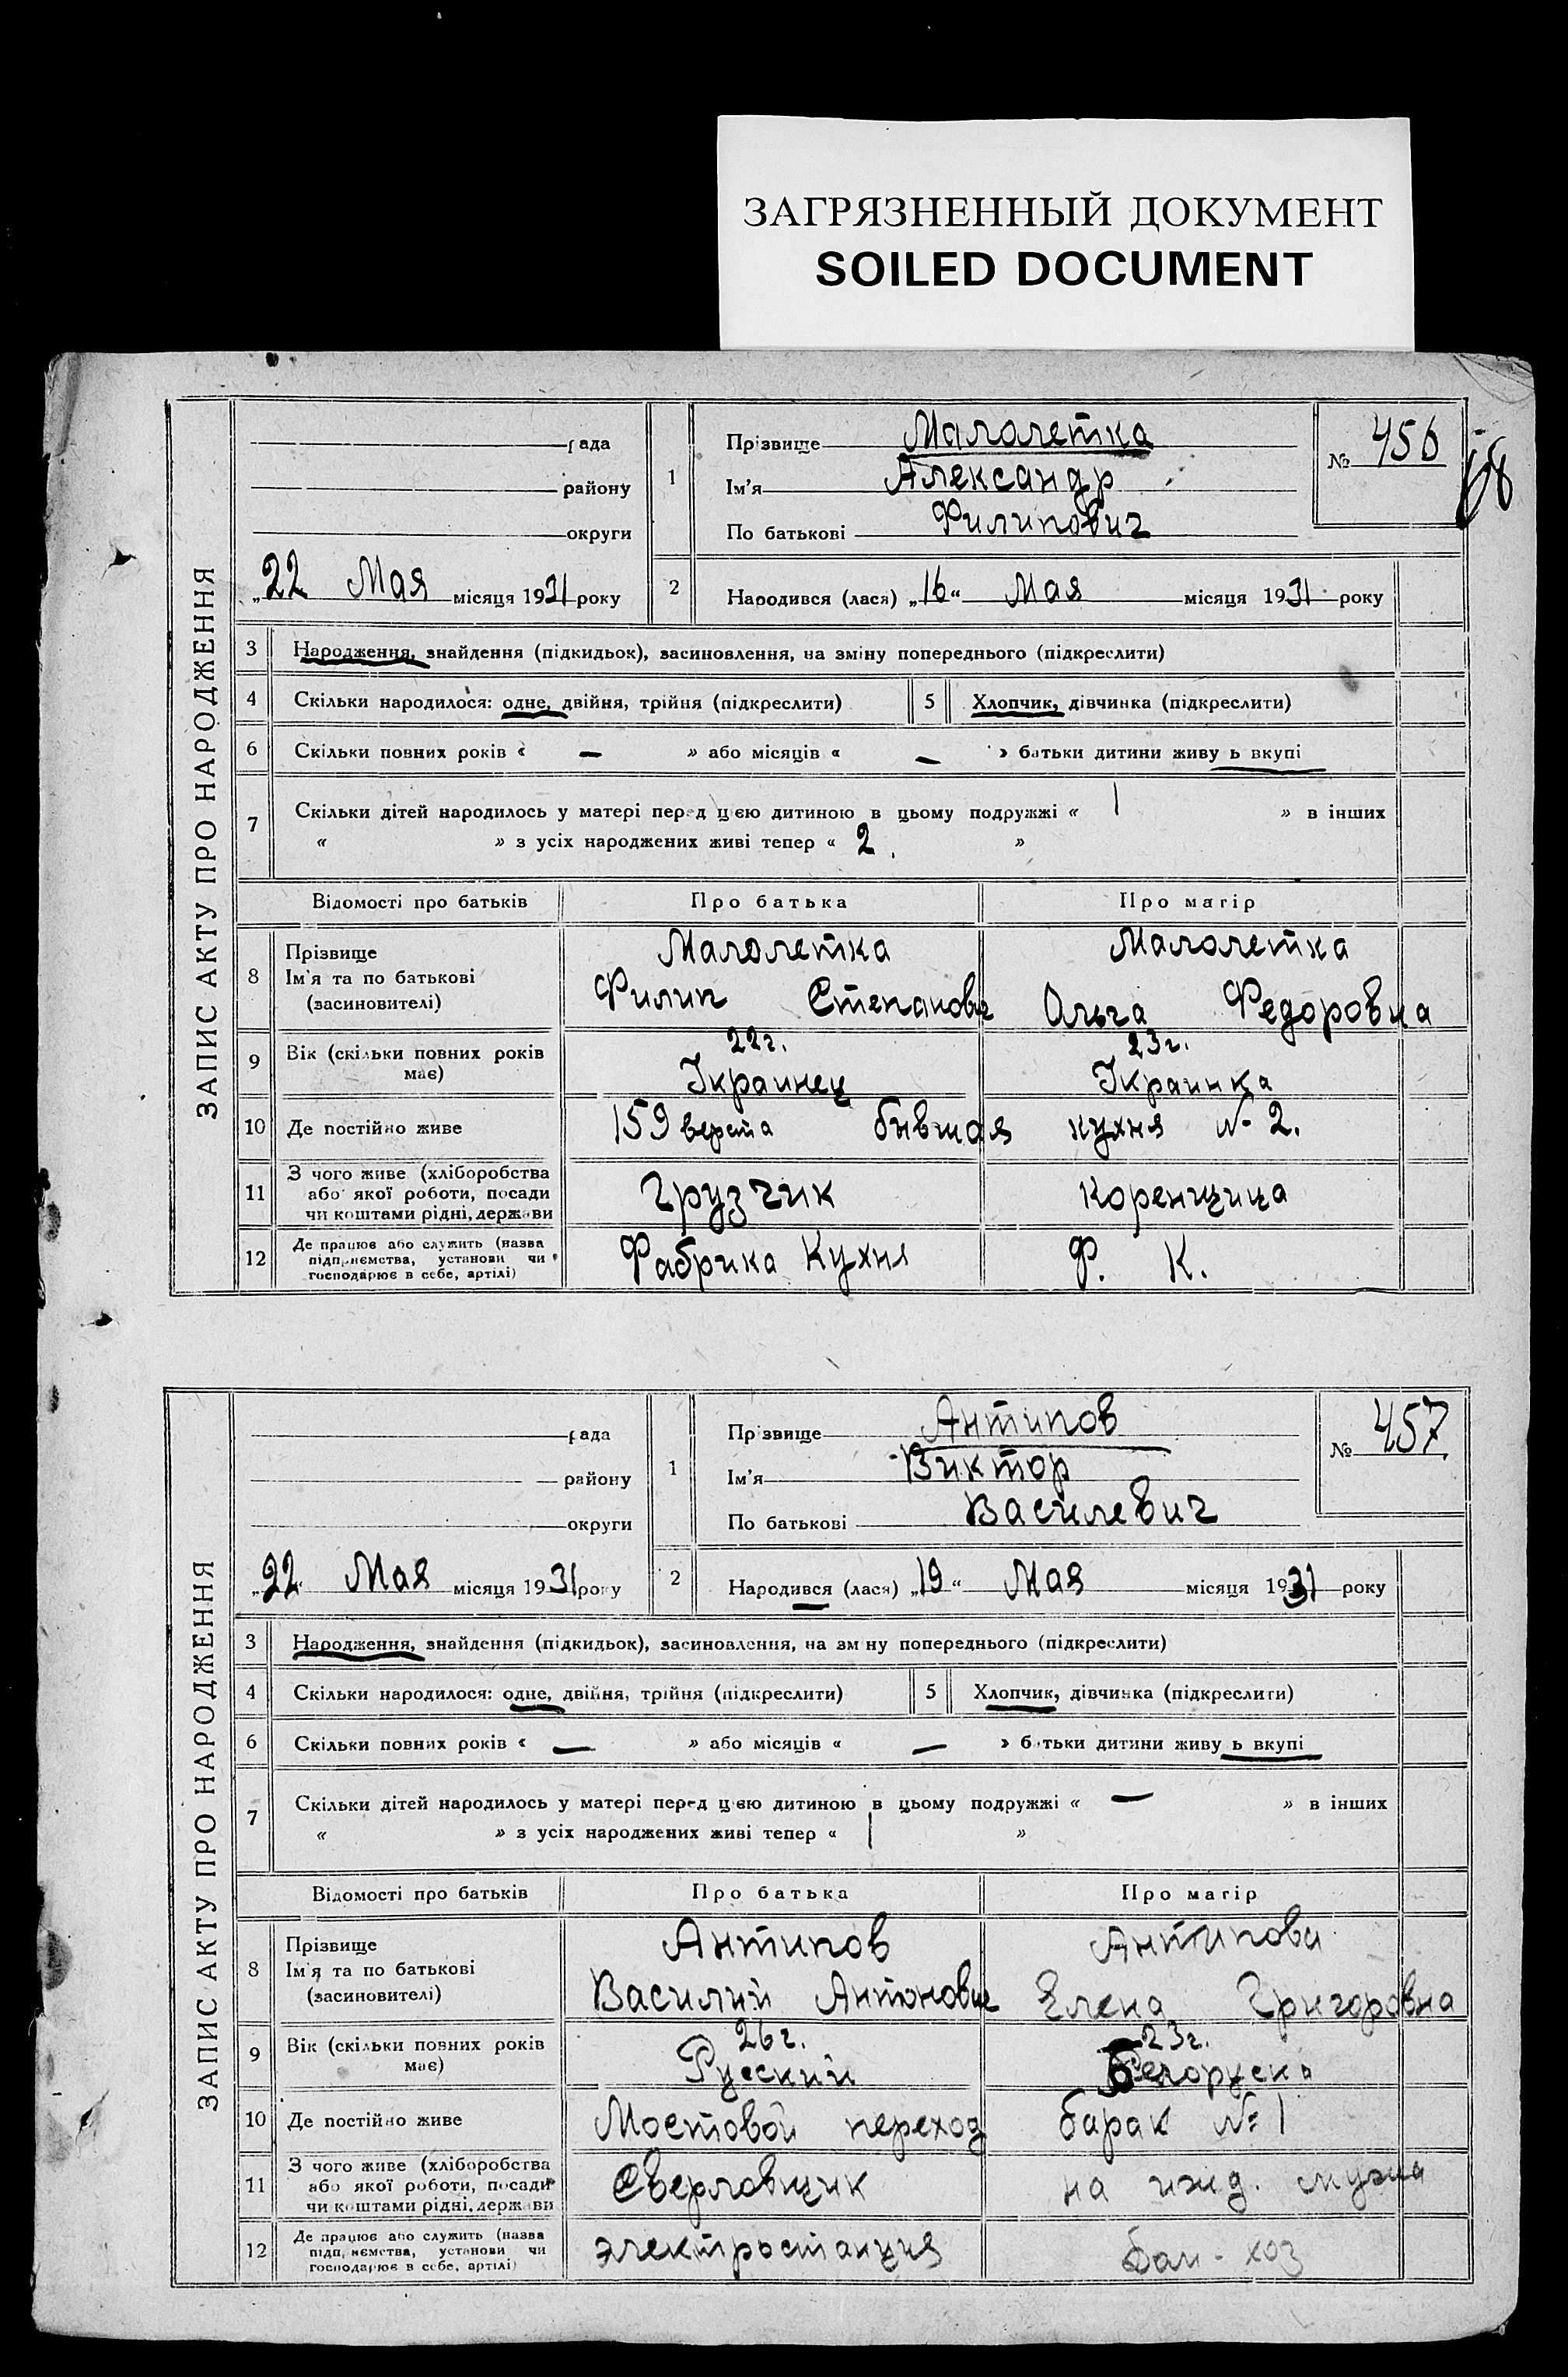 ЗАГРЯЗНЕННЫЙ ДОКУМЕНТ
SOILED DOCUMENT
ЗАПИС АКТУ ПРО НАРОДЖЕННЯ
рада
району
округи
„22 Мая місяця 1931 року
1
Прізвище Малолетка
Ім'я Александр
По батькові Филипович
№ 456
68
2 Народився (лася) „16“ Мая місяця 1931 року
3 Народження, знайдення (підкидьок), засиновлення, на зміну попереднього (підкреслити)
4 Скільки народилося: одне, двійня, трійня (підкреслити) 5 Хлопчик, дівчинка (підкреслити)
6 Скільки повних років « — » або місяців « — » батьки дитини живуть вкупі
7 Скільки дітей народилось у матері перед цією дитиною в цьому подружжі « 1 » в інших
« » з усіх народжених живі тепер « 2 »
Відомості про батьків Про батька Про матір
8 Прізвище Малолетка Малолетка
Ім'я та по батькові Филип Степанович Ольга Федоровна
(засиновителі)
9 Вік (скільки повних років має) 22г. 23г.
Украинец Украинка
10 Де постійно живе 159 верста бывшая кухня № 2.
11 З чого живе (хліборобства
або якої роботи, посади Грузчик Коренщица
чи коштами рідні, держави
12 Де працює або служить (назва
підприємства, установи чи Фабрика Кухня Ф. К.
господарює в себе, артілі)
ЗАПИС АКТУ ПРО НАРОДЖЕННЯ
рада
району
округи
„22 Мая місяця 1931 року
1
Прізвище Антипов
Ім'я Виктор
По батькові Василевич
№ 457
2 Народився (лася) „19“ Мая місяця 1931 року
3 Народження, знайдення (підкидьок), засиновлення, на зміну попереднього (підкреслити)
4 Скільки народилося: одне, двійня, трійня (підкреслити) 5 Хлопчик, дівчинка (підкреслити)
6 Скільки повних років « — » або місяців « — » батьки дитини живуть вкупі
7 Скільки дітей народилось у матері перед цією дитиною в цьому подружжі « — » в інших
« » з усіх народжених живі тепер « 1 »
Відомості про батьків Про батька Про матір
8 Прізвище Антипов Антипова
Ім'я та по батькові Василий Антонович Елена Григоровна
(засиновителі)
9 Вік (скільки повних років має) 26г. 23г.
Русский Белоруска
10 Де постійно живе Мостовой переход барак № 1
11 З чого живе (хліборобства
або якої роботи, посади Сверловщик на ижд. мужа
чи коштами рідні, держави
12 Де працює або служить (назва
підприємства, установи чи электростанция Дом-хоз
господарює в себе, артілі)